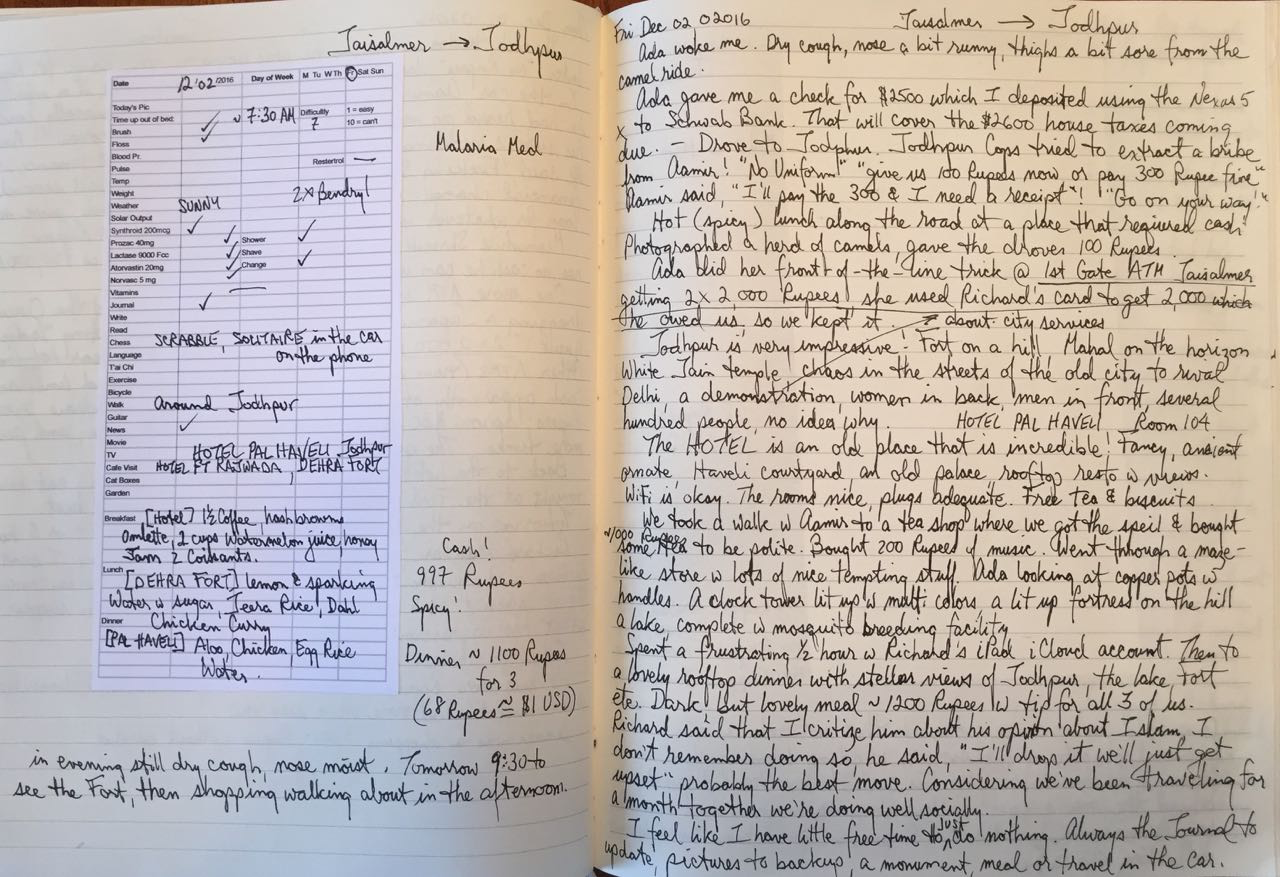 Jaisalmer → Jodhpur
Date 12/02/2016 Day of Week M Tu W Th Fr Sat Sun
Today's Pic
Time up out of bed: ~ 7:30 AM Difficulty 7 1 = easy 10 = can't
Brush
Floss
Blood Pr.
Pulse Restertrol —
Temp
Weight 2x Bendryl
Weather SUNNY
Solar Output
Synthroid 200mcg
Prozac 40mg Shower
Lactase 9000 Fcc Shave
Atorvastin 20mg Change
Norvasc 5 mg
Vitamins
Journal
Write
Read
Chess SCRABBLE, SOLITAIRE in the car
Language on the phone
T'ai Chi
Exercise
Bicycle
Walk around Jodhpur
Guitar
News
Movie
TV HOTEL PAL HAVELI Jodhpur
Cafe Visit HOTEL FT RAJWADA, DEHRA FORT
Cat Boxes
Garden
Breakfast [Hotel] 1½ Coffee, hashbrowns
Omlette, 2 cups Watermelon juice, honey
Jam 2 Coissants.
Lunch
[DEHRA FORT] lemon & sparking
Water w sugar, Jeera Rice, Dahl
Dinner Chicken Curry
[PAL HAVELI] Aloo, Chicken, Egg Rice
Water.
Malaria Med
Cash!
997 Rupees
Spicy!
Dinner ~ 1100 Rupees
for 3
(68 Rupees ≅ $1 USD)
in evening still dry cough, nose moist. Tomorrow 9:30 to
see the Fort, then shopping walking about in the afternoon.
Fri Dec 02 02016 Jaisalmer → Jodhpur
Ada woke me. Dry cough, nose a bit runny, thighs a bit sore from the
camel ride.
Ada gave me a check for $2500 which I deposited using the Nexus 5
x to Schwab Bank. That will cover the $2600 house taxes coming
due. – Drove to Jodphur. Jodhpur Cops tried to extract a bribe
from Aamir! "No Uniform" "give us 100 Rupees now or pay 300 Rupee fine"
Aamir said, "I'll pay the 300 & I need a receipt"! "Go on your way!"
Hot (spicy) lunch along the road at a place that required cash!
Photographed a herd of camels, gave the drover 100 Rupees
Ada did her front-of-the-line trick @ 1st Gate ATM Jaisalmer
getting 2x 2,000 Rupees she used Richard's card to get 2,000 which
he owed us, so we kept it. about city services
Jodhpur is very impressive! Fort on a hill Mahal on the horizon
White Jain temple, chaos in the streets of the old city to rival
Delhi, a demonstration, women in back, men in front, several
hundred people, no idea why. HOTEL PAL HAVELI Room 104
The HOTEL is an old place that is incredible! Fancy, ancient
ornate, Haveli courtyard, an old palace, rooftop resto w views.
WiFi is okay. The rooms nice, plugs adequate. Free tea & biscuits
We took a walk w Aamir to a tea shop where we got the speil & bought
~1000 Rupees
some tea to be polite. Bought 200 Rupees of music. Went through a maze-
like store w lots of nice tempting stuff. Ada looking at copper pots w
handles. A clock tower lit up w multi colors, a lit up fortress on the hill
a lake, complete w mosquito breeding facility
Spent a frustrating ½ hour w Richard's iPad iCloud account. Then to
a lovely rooftop dinner with stellar views of Jodhpur, the lake, fort
etc. Dark but lovely meal ~ 1200 Rupees w tip for all 3 of us.
Richard said that I critize him about his opinion about Islam, I
don't remember doing so, he said, "I'll drop it we'll just get
upset" probably the best move. Considering we've been traveling for
a month together we're doing well socially.
I feel like I have little free time to just do nothing. Always the Journal to
update, pictures to backup, a monument, meal or travel in the car.